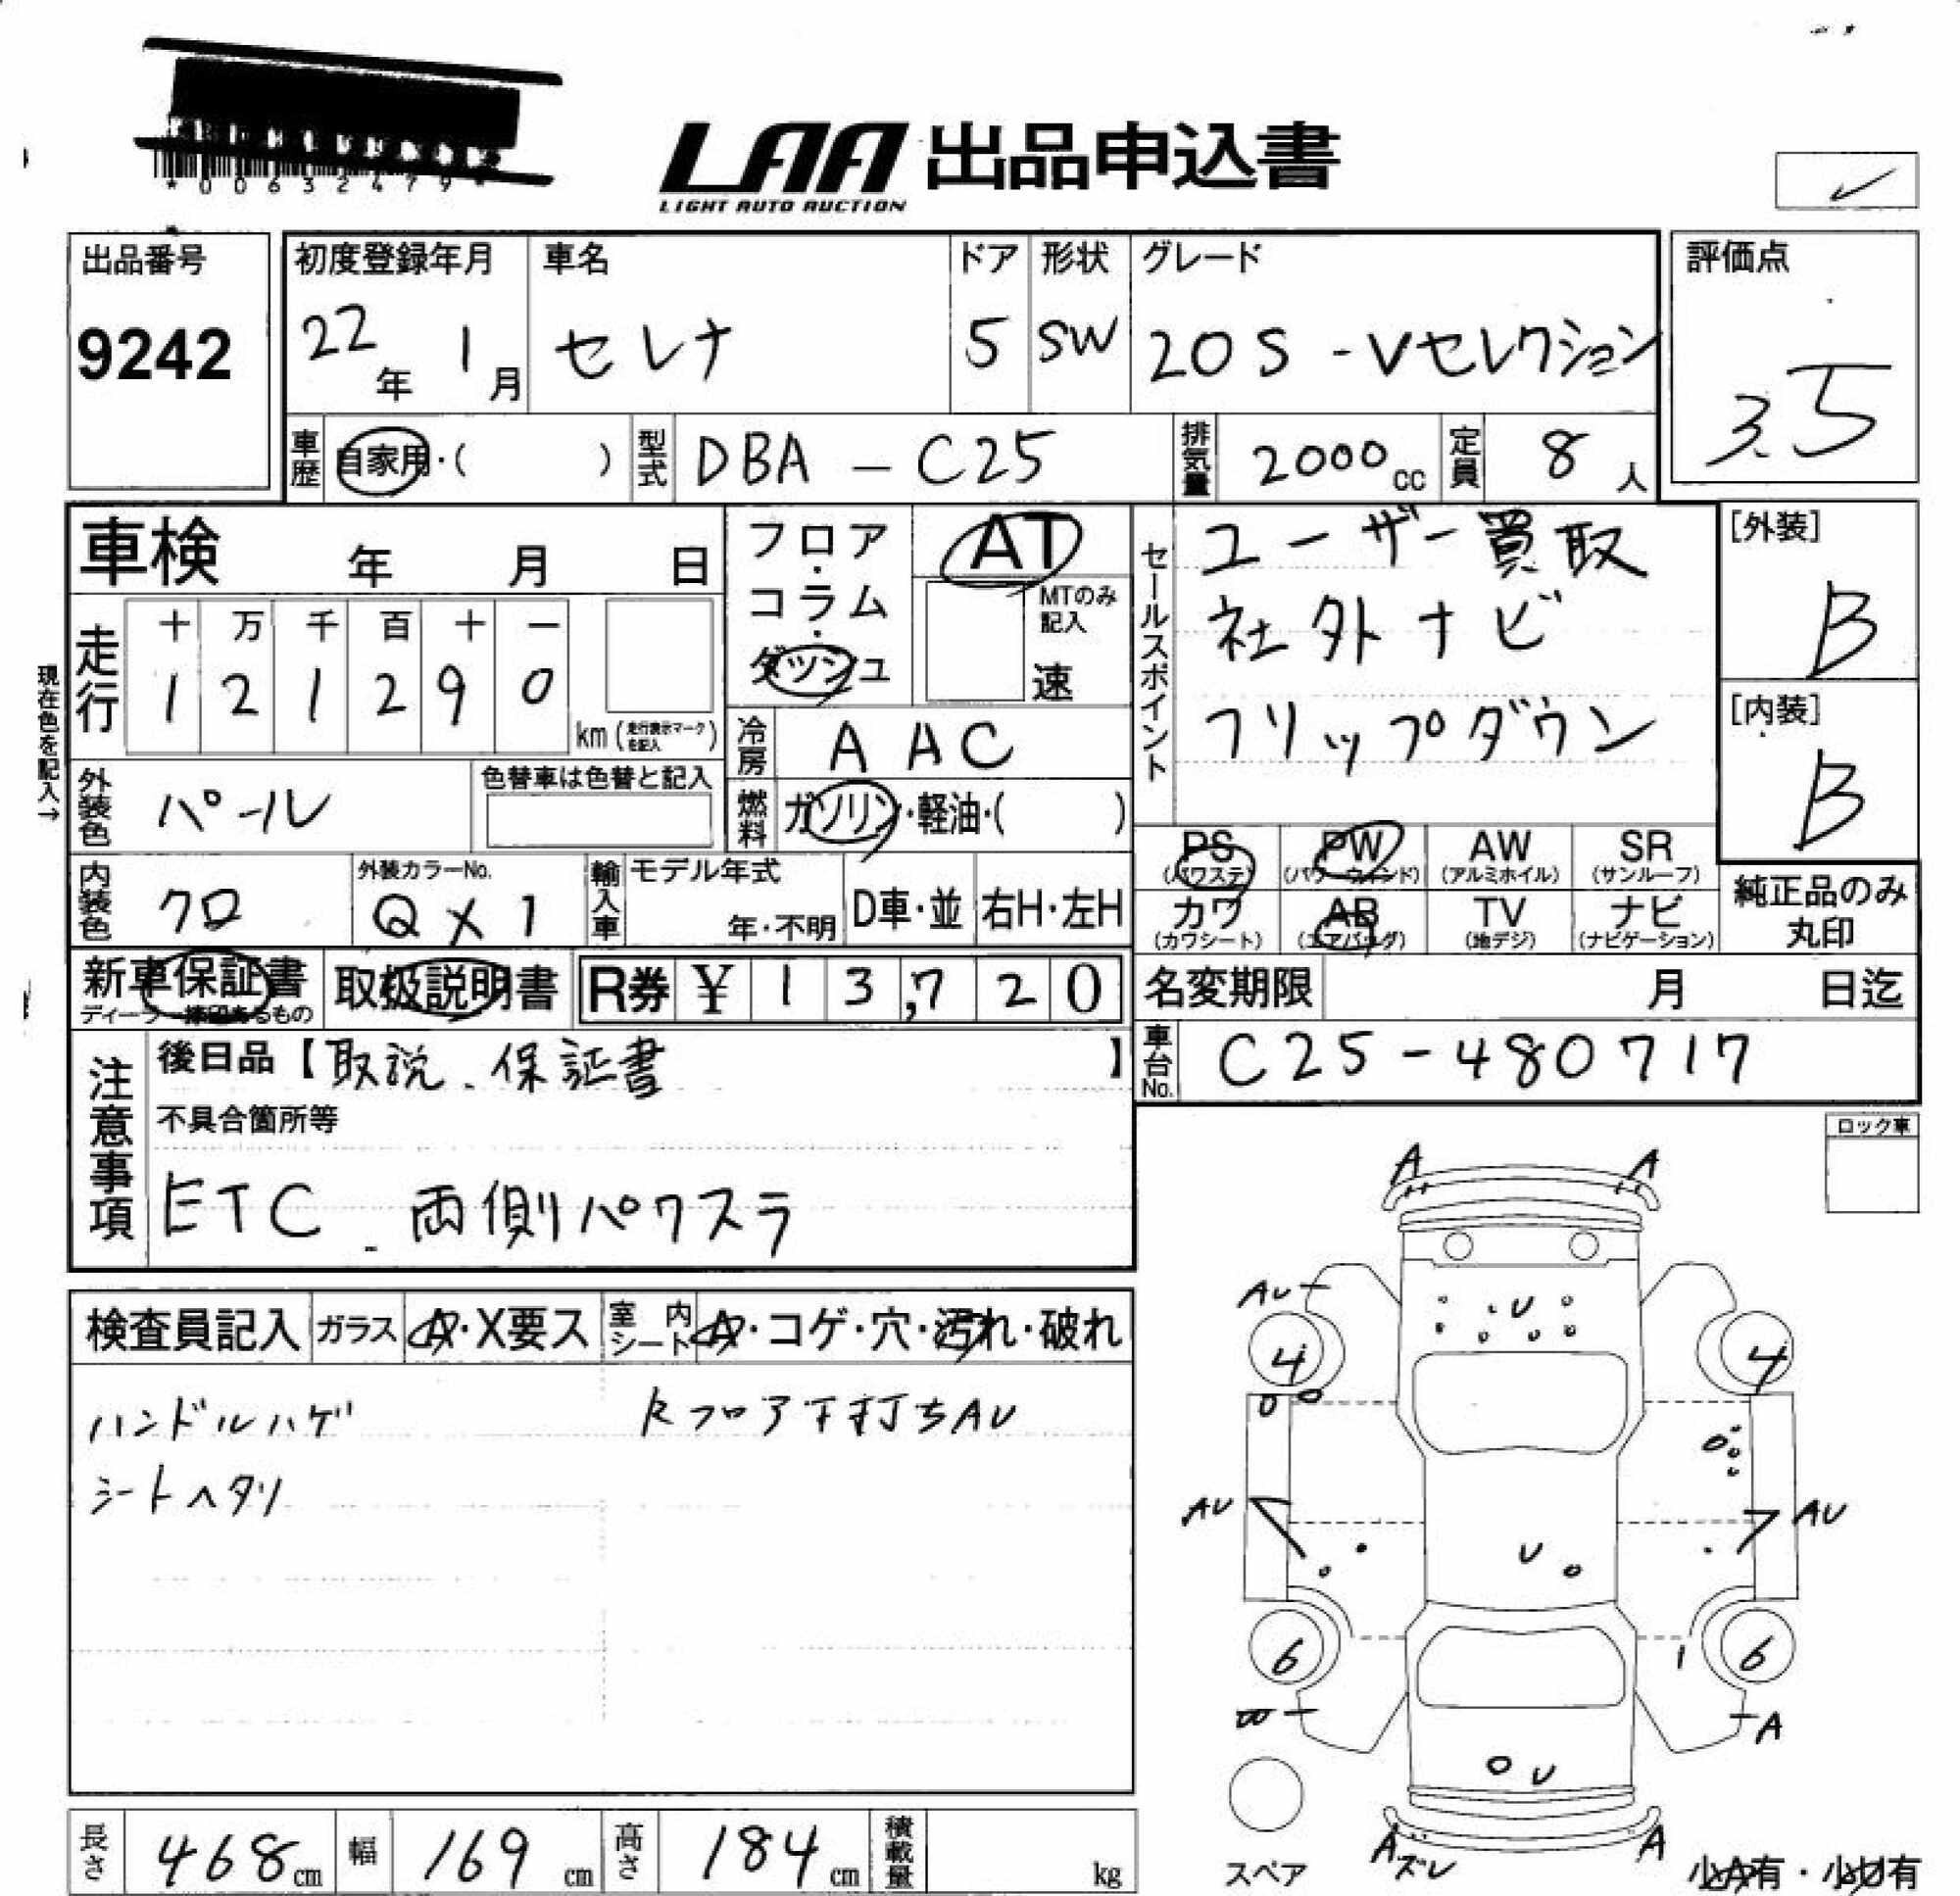 *00632479*
LAA 出品申込書
LIGHT AUTO AUCTION
出品番号
9242
初度登録年月
22年 1月
車名
セレナ
ドア
5
形状
SW
グレード
20S -Vセレクション
評価点
3.5
車歴 自家用・( )
型式 DBA - C25
排気量 2000cc
定員 8人
車検 年 月 日
フロア・コラム・ダッシュ
AT
MTのみ記入
速
セールスポイント
ユーザー買取
社外ナビ
フリップダウン
[外装]
B
[内装]
B
現在色を記入→
走行
十 万 千 百 十 一
1 2 1 2 9 0
km (走行表示マークを記入)
冷房 A A C
外装色 パール
色替車は色替と記入
燃料 ガソリン・軽油・( )
PS (パワステ)
PW (パワーウインド)
AW (アルミホイル)
SR (サンルーフ)
カワ (カワシート)
AB (エアバッグ)
TV (地デジ)
ナビ (ナビゲーション)
純正品のみ丸印
内装色 クロ
外装カラーNo.
QX1
輸入車
モデル年式
年・不明
D車・並
右H・左H
新車保証書
取扱説明書
R券 ¥ 13,720
名変期限 月 日迄
車台No. C25-480717
注意事項
後日品【取説.保証書】
不具合箇所等
ETC 両側パワスラ
ロック車
検査員記入
ガラス A・X要ス
室内シート A・コゲ・穴・汚れ・破れ
ハンドルハゲ
Rフロア下打ちAU
シートヘタリ
A A
AU
U
4 4
AU AU
U
6 6
A
U
A ズレ A
スペア
小A有・小U有
長さ 468cm
幅 169cm
高さ 184cm
積載量 kg